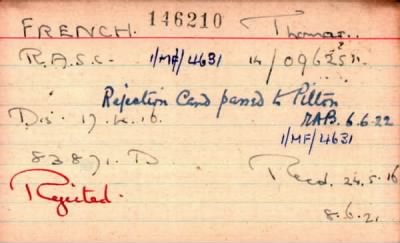 FRENCH. 146210 Thomas.
R.A.S.C. 1/MF/4631 M/096251.
Rejection Card passed to Pitton
RAB. 6.6.22
Dis. 17.4.16. 1/MF/4631
83871. D Recd. 24.5.16
Rejected.
8.6.21.